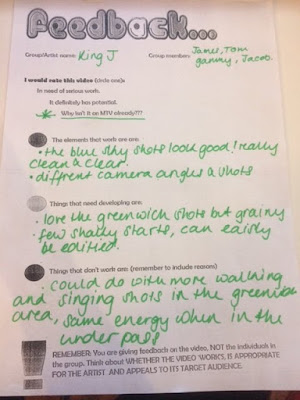 Feedback...
Group/Artist name: King J Group members: James, Tom
gammy, Jacob
I would rate this video (circle one):
In need of serious work.
It definitely has potential.
Why isn't it an MTV already???
The elements that work are are:
• the blue sky shots look good! really
clean & clear.
• diffrent camera angles & shots
Things that need developing are:
• love the greenwich shots but grainy
• few shakey starts, can eaisly
be editied.
Things that don't work are: (remember to include reasons)
• could do with more walking
and singing shots in the greenwich
area, same energy when in the
under pass
REMEMBER: You are giving feedback on the video, NOT the individuals
in the group. Think about WHETHER THE VIDEO WORKS, IS APPROPRIATE
FOR THE ARTIST AND APPEALS TO ITS TARGET AUDIENCE.